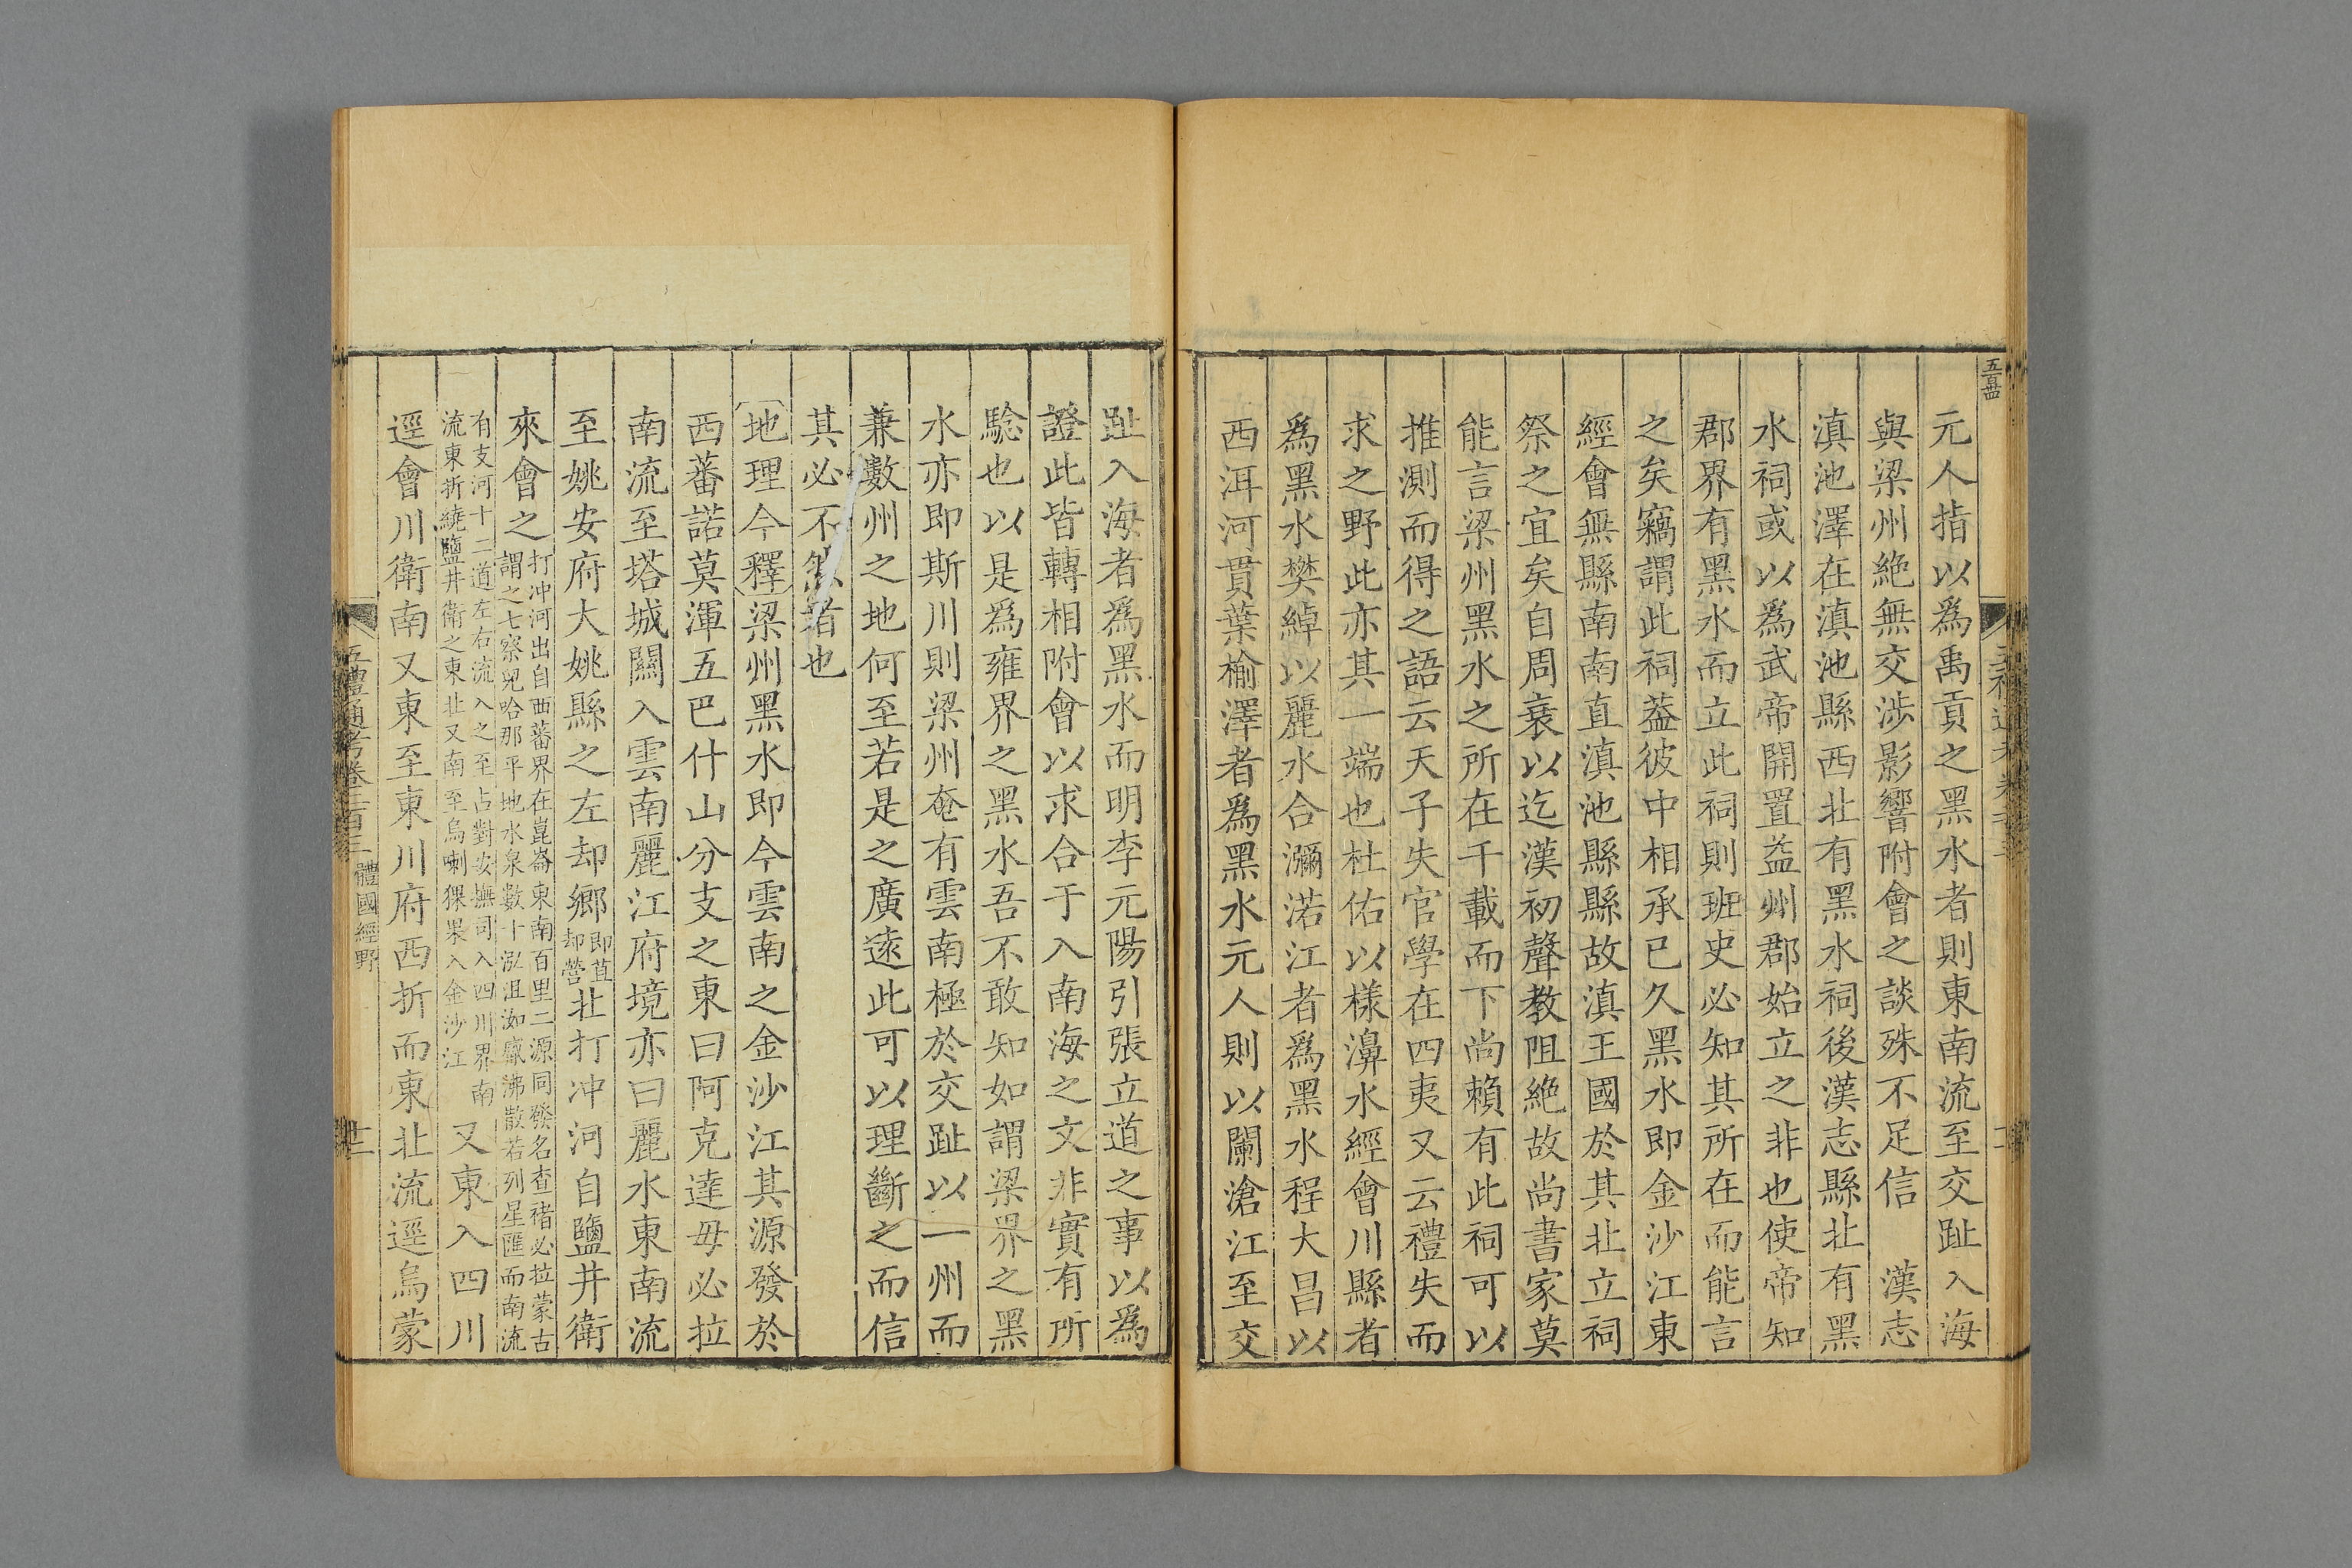 元人指以爲禹貢之黑水者則東南流至交趾入海
與梁州絶無交渉影響附會之談殊不足信　漢志
滇池澤在滇池縣西北有黑水祠後漢志縣北有黑
水祠或以爲武帝開置益州郡始立之非也使帝知
郡界有黑水而立此祠則班史必知其所在而能言
之矣竊謂此祠葢彼中相承已久黑水即金沙江東
經會無縣南南直滇池縣縣故滇王國於其北立祠
祭之宜矣自周衰以迄漢初聲教阻絶故尚書家莫
能言梁州黑水之所在千載而下尚賴有此祠可以
推測而得之語云天子失官學在四夷又云禮失而
求之野此亦其一端也杜佑以樣濞水經會川縣者
爲黑水樊綽以麗水合瀰渃江者爲黑水程大昌以
西洱河貫葉榆澤者爲黑水元人則以闌滄江至交
趾入海者爲黑水而明李元陽引張立道之事以爲
證此皆轉相附會以求合于入南海之文非實有所
騐也以是爲雍界之黑水吾不敢知如謂梁界之黑
水亦即斯川則梁州奄有雲南極於交趾以一州而
兼數州之地何至若是之廣遠此可以理斷之而信
其必不然者也
地理今釋梁州黑水即今雲南之金沙江其源發於
西蕃諾莫渾五巴什山分支之東曰阿克達毋必拉
南流至塔城關入雲南麗江府境亦曰麗水東南流
至姚安府大姚縣之左却鄉即苴却營北打冲河自鹽井衛
來會之打冲河出自西蕃界在崑崙東南百里二源同發名查禇必拉蒙古
謂之七察兒哈那平地水泉數十泓沮洳㵒沸散若列星匯而南流
有支河十二道左右流入之至占對安撫司入四川界南
流東折繞鹽井衛之東北又南至烏喇猓果入金沙江又東入四川
逕會川衛南又東至東川府西折而東北流逕烏蒙
五禮通考卷二百三
體國經野